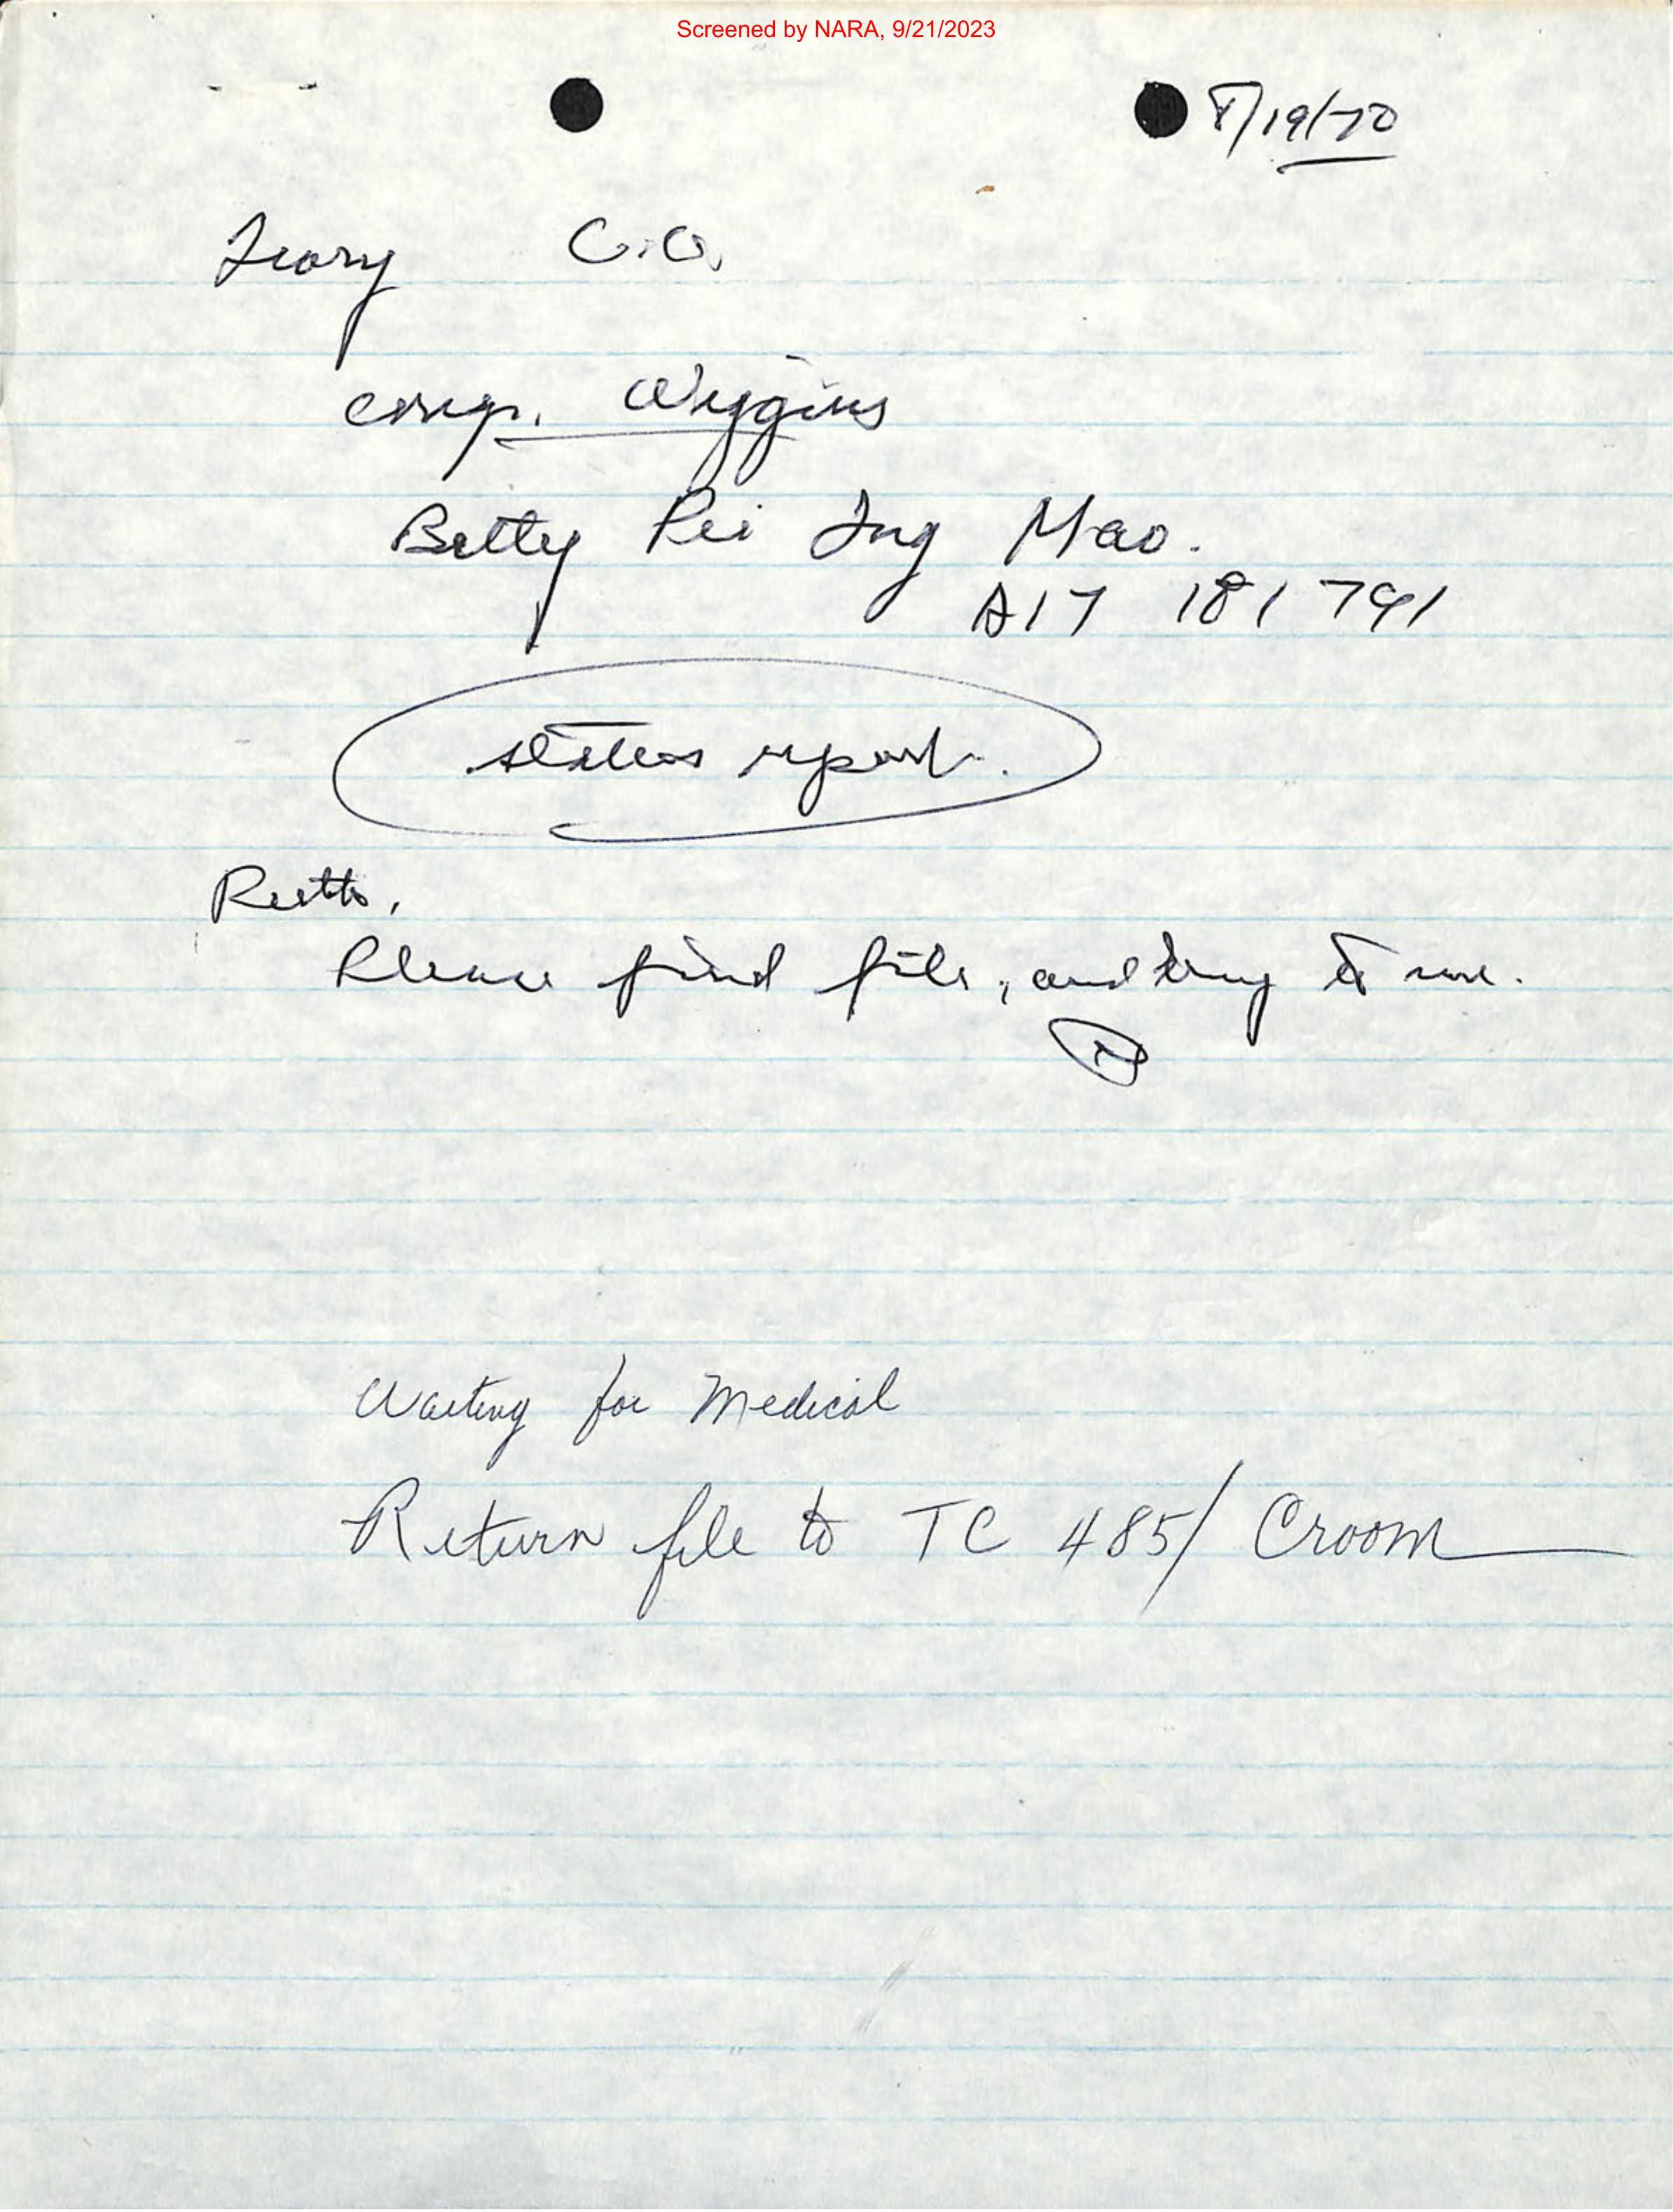 Screened by NARA, 9/21/2023
8/19/70
Ivory C.O.
cong. Wiggins
Betty Pei Ing Mao.
A17 181 791
status report.
Ruth,
Please find file, and bring to me.
Waiting for Medical
Return file to TC 485/ Croom